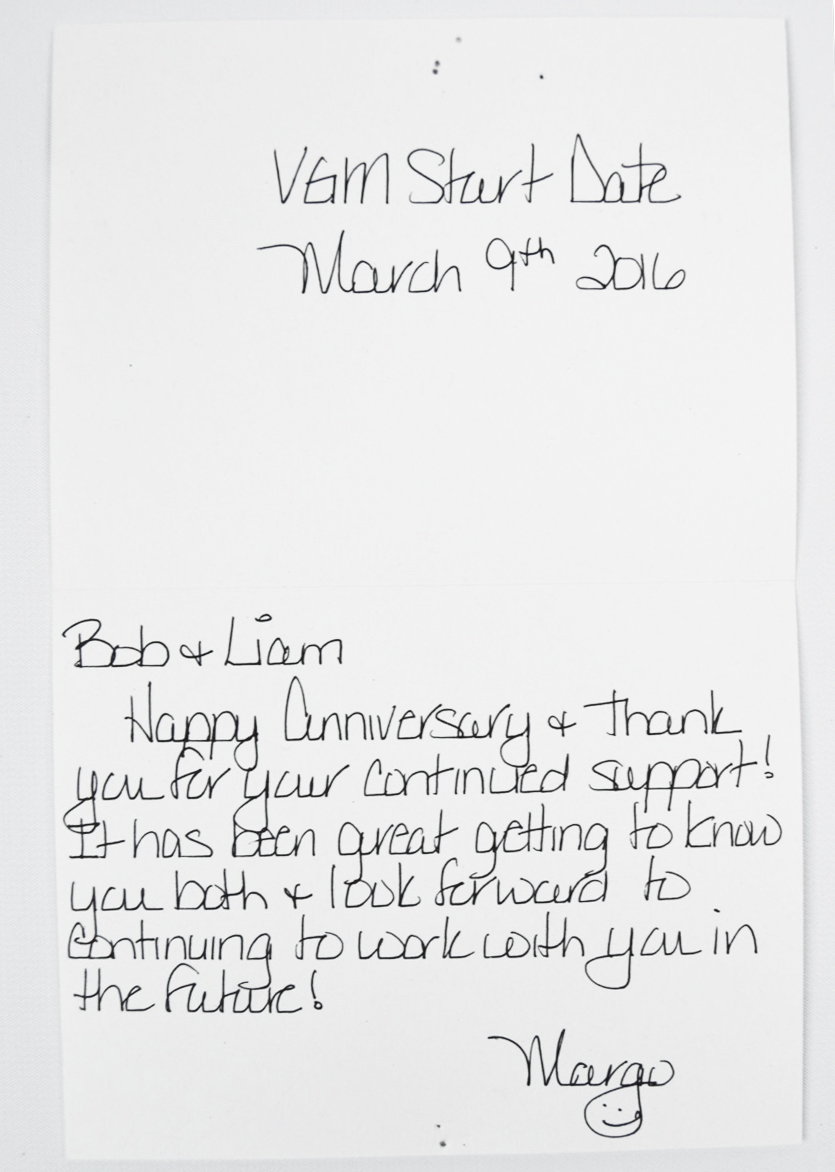 VGM Start Date
March 9th 2016
Bob & Liam
Happy Anniversary & Thank
you for your continued support!
It has been great getting to know
you both & look forward to
continuing to work with you in
the future!
Margo